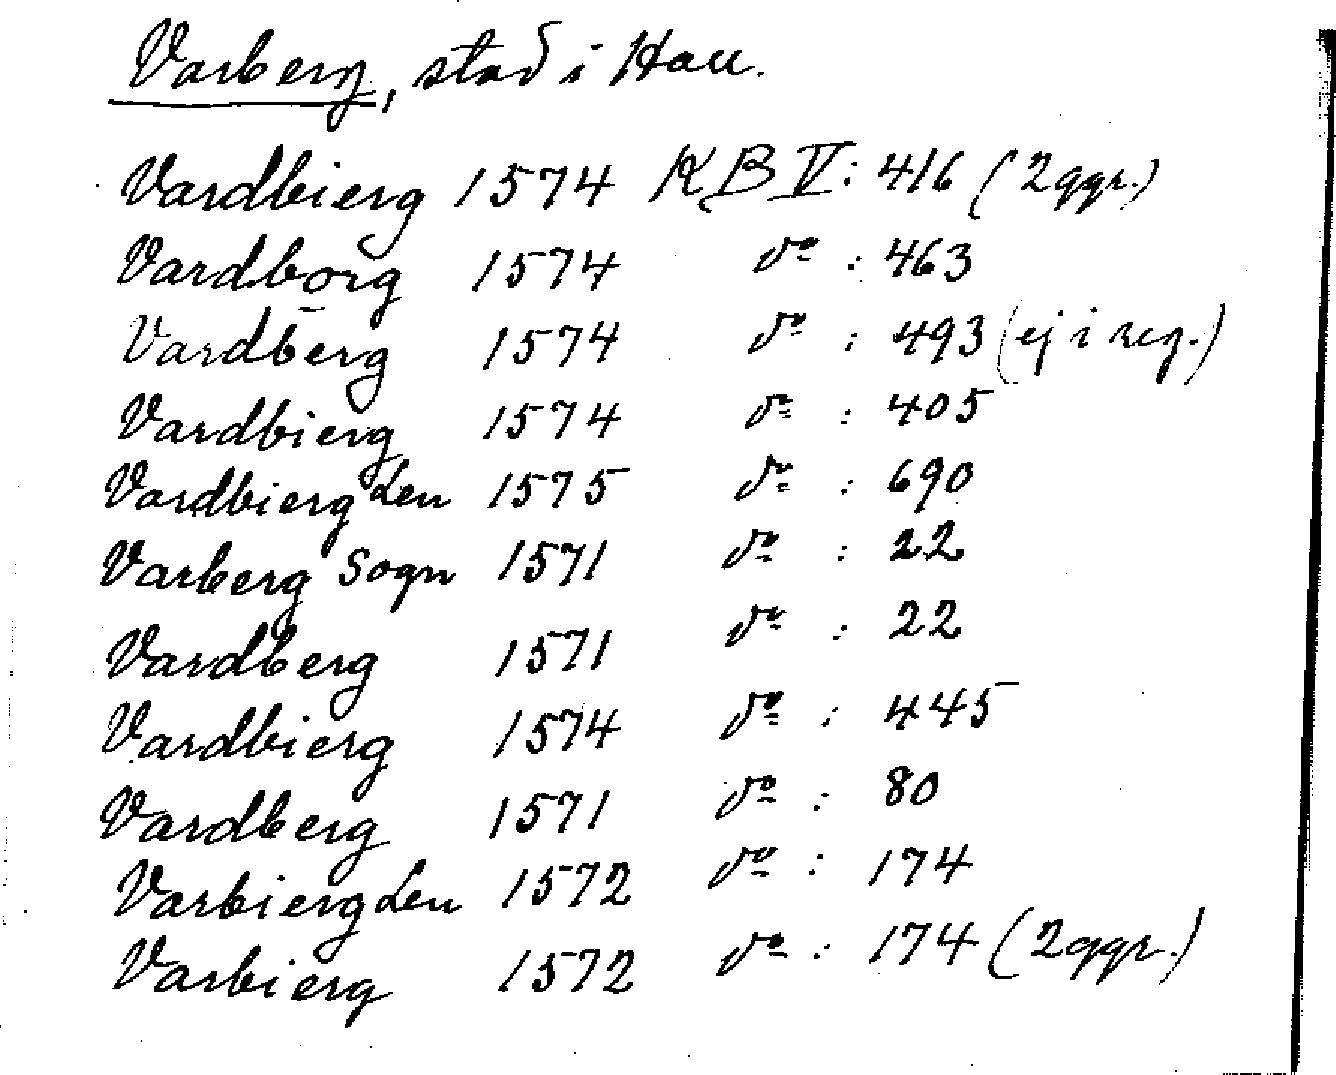 Varberg, stad i Hall.
Vardbierg 1574 KB V: 416 (2ggr.)
Vardborg 1574 do : 463
Vardberg 1574 do : 493 (ej i reg.)
Vardbierg 1574 do : 405
Vardbierg Len 1575 do : 690
Varberg Sogn 1571 do : 22
Vardberg 1571 do : 22
Vardbierg 1574 do : 445
Vardberg 1571 do : 80
Varbierg Len 1572 do : 174
Varbierg 1572 do : 174 (2ggr.)